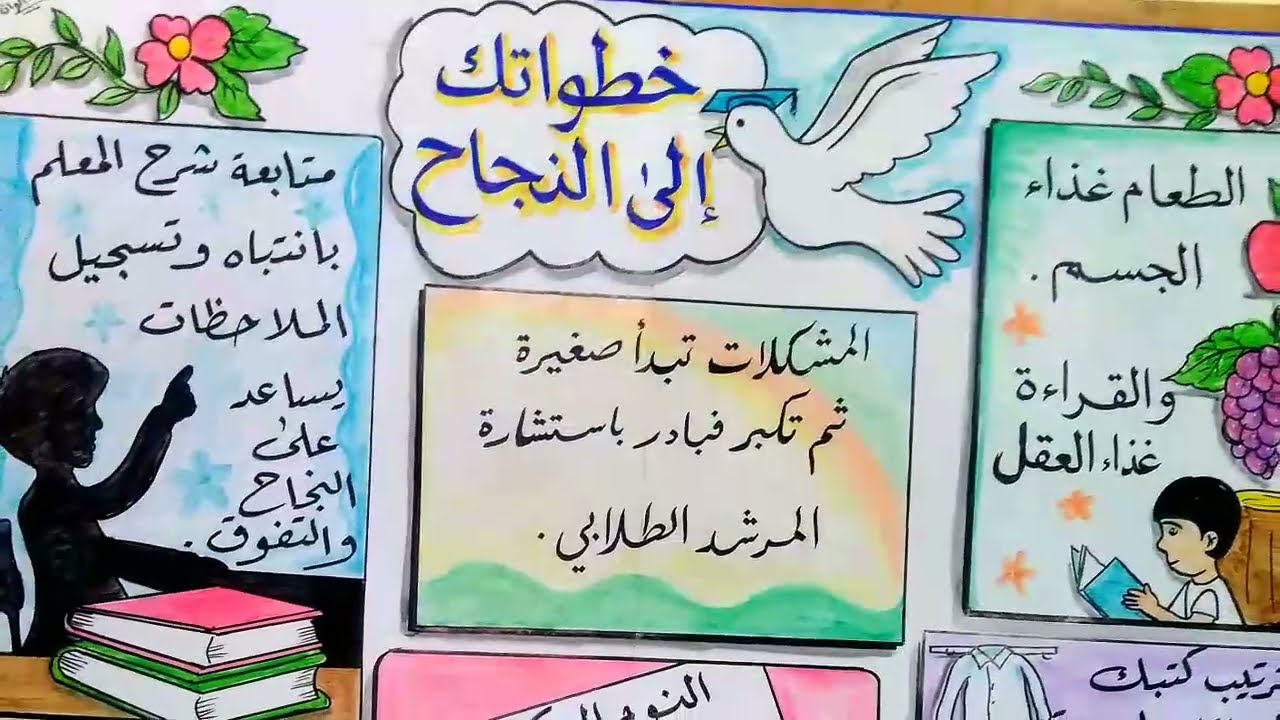 خطواتك
إلى النجاح
الطعام غذاء
الجسم .
والقراءة
غذاء العقل
المشكلات تبدأ صغيرة
ثم تكبر فبادر باستشارة
المرشد الطلابي .
متابعة شرح المعلم
بانتباه وتسجيل
الملاحظات
يساعد
على
النجاح
والتفوق .
ترتيب كتبك
النوم